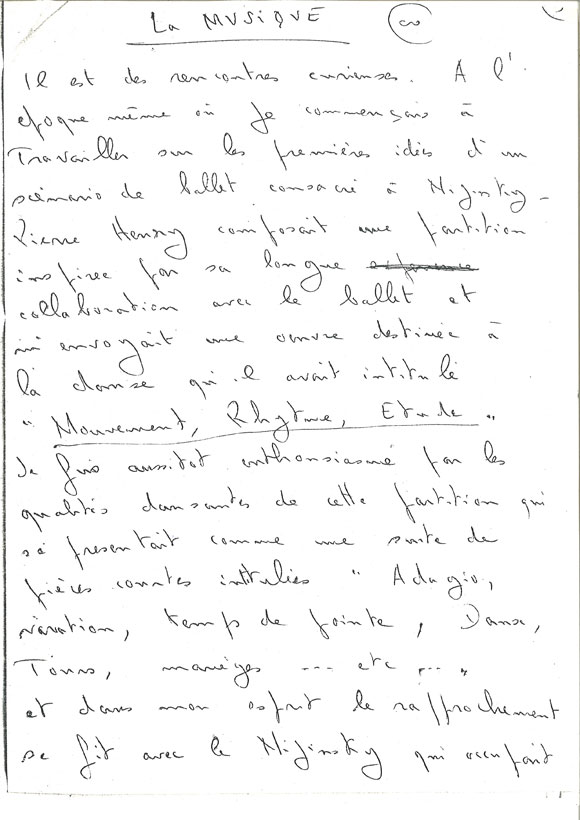 La MUSIQUE
Il est des rencontres curieuses. A l'
epoque même où Je commençais à
Travailler sur les premières idées d'un
scénario de ballet consacré à Nijinsky -
Pierre Henry composait une partition
inspiree par sa longue
collaboration avec le ballet et
m'envoyait une oeuvre destinée à
la danse qu'il avait intitulé
" Mouvement, Rhytme, Etude "
Je fus aussitot enthousiasmé par les
qualités dansantes de cette partition qui
se presentait comme une suite de
pièces courtes intitulées " Adagio,
variation, temps de pointe, Danse,
Tours, manèges --- etc --- "
et dans mon esprit le rapprochement
se fit avec le Nijinsky qui occupait